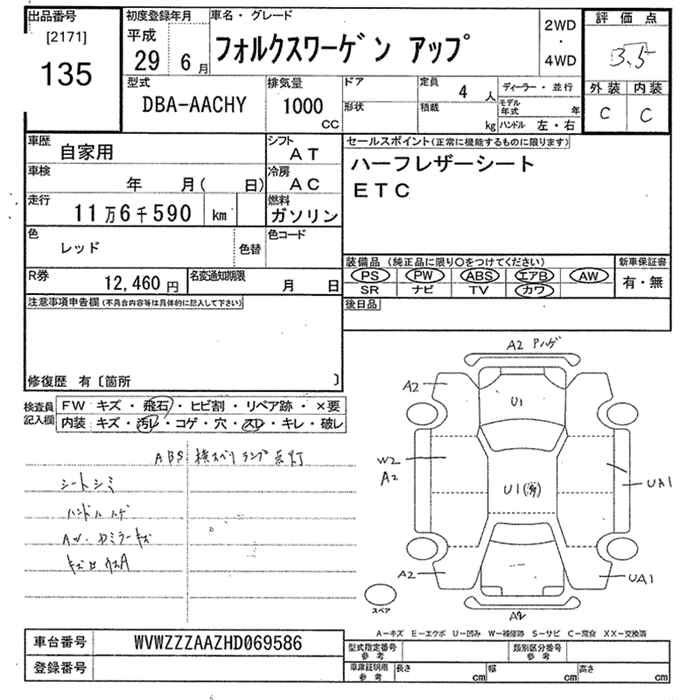 出品番号
[2171]
135
初度登録年月
平成
29 6月
車名・グレード
フォルクスワーゲン アップ
2WD
・
4WD
評価点
3.5
外装 内装
C C
型式
DBA-AACHY
排気量
1000
CC
ドア
形状
定員
4 人
積載
kg
ディーラー・並行
モデル年式 年
ハンドル 左・右
車歴
自家用
シフト
AT
車検
年 月( 日)
冷房
AC
走行
11万6千590 km
燃料
ガソリン
色
レッド
色替
色コード
R券
12,460 円
名変通知期限
月 日
セールスポイント(正常に機能するものに限ります)
ハーフレザーシート
ETC
装備品 (純正品に限り○をつけてください)
新車保証書
PS PW ABS エアB AW
SR ナビ TV カワ
有・無
後日品
注意事項申告欄(不具合内容等は具体的に記入して下さい)
修復歴 有〔箇所 〕
検査員
記入欄
FW キズ・飛石・ヒビ割・リペア跡・×要
内装 キズ・汚レ・コゲ・穴・スレ・キレ・破レ
ABS 横スベリ ランプ 点灯
シートシミ
ハンドルハゲ
A2 アハゲ
A2
U1
W2
A2
U1
UA1
A2
UA1
A2
スペア
A-キズ E-エクボ U-凹み W-補修跡 S-サビ C-腐食 XX-交換済
車台番号
WVWZZZAAZHD069586
登録番号
型式指定番号
参考
類別区分番号
参考
車庫証明用
参考
長さ cm
幅 cm
高さ cm